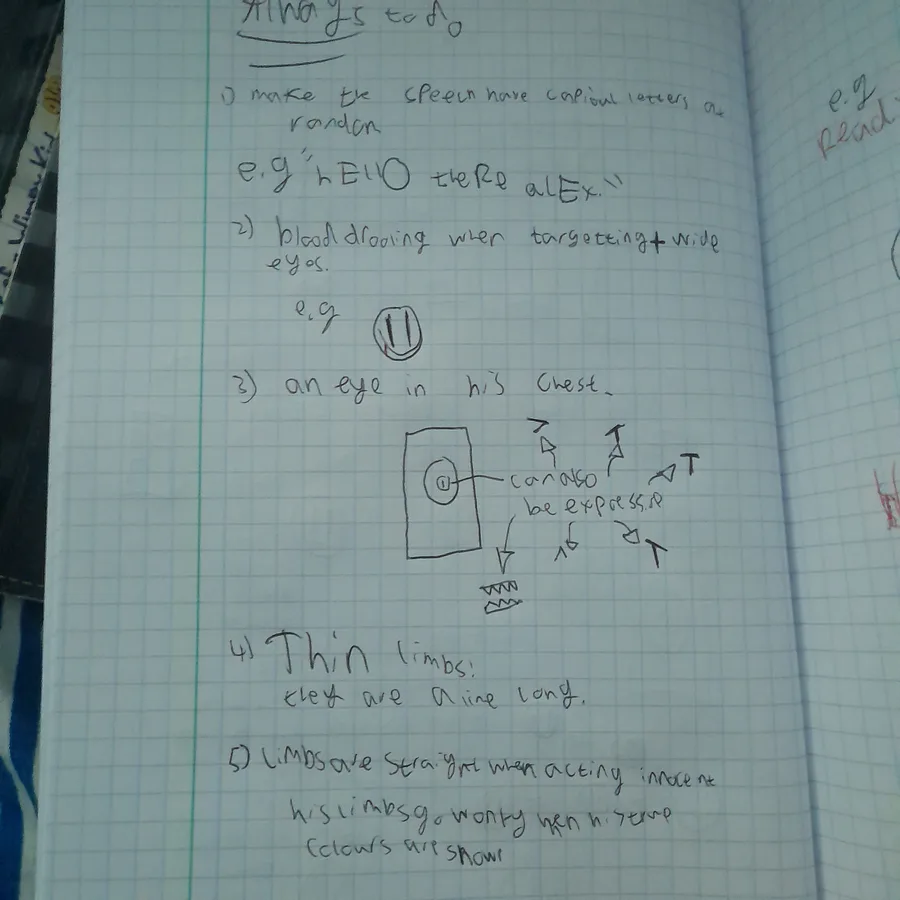 Always to do
1) make the speech have capioul letters at
randon
e.g "hEllO theRe alEx."
2) blood drooling when targetting + wide
eyes.
e.g
3) an eye in his chest.
can also
be expressive
T
T
T
4) Thin limbs:
they are a line long.
5) limbs are straight when acting innocent
his limbs go wonky when his true
colours are show
e.g
Read